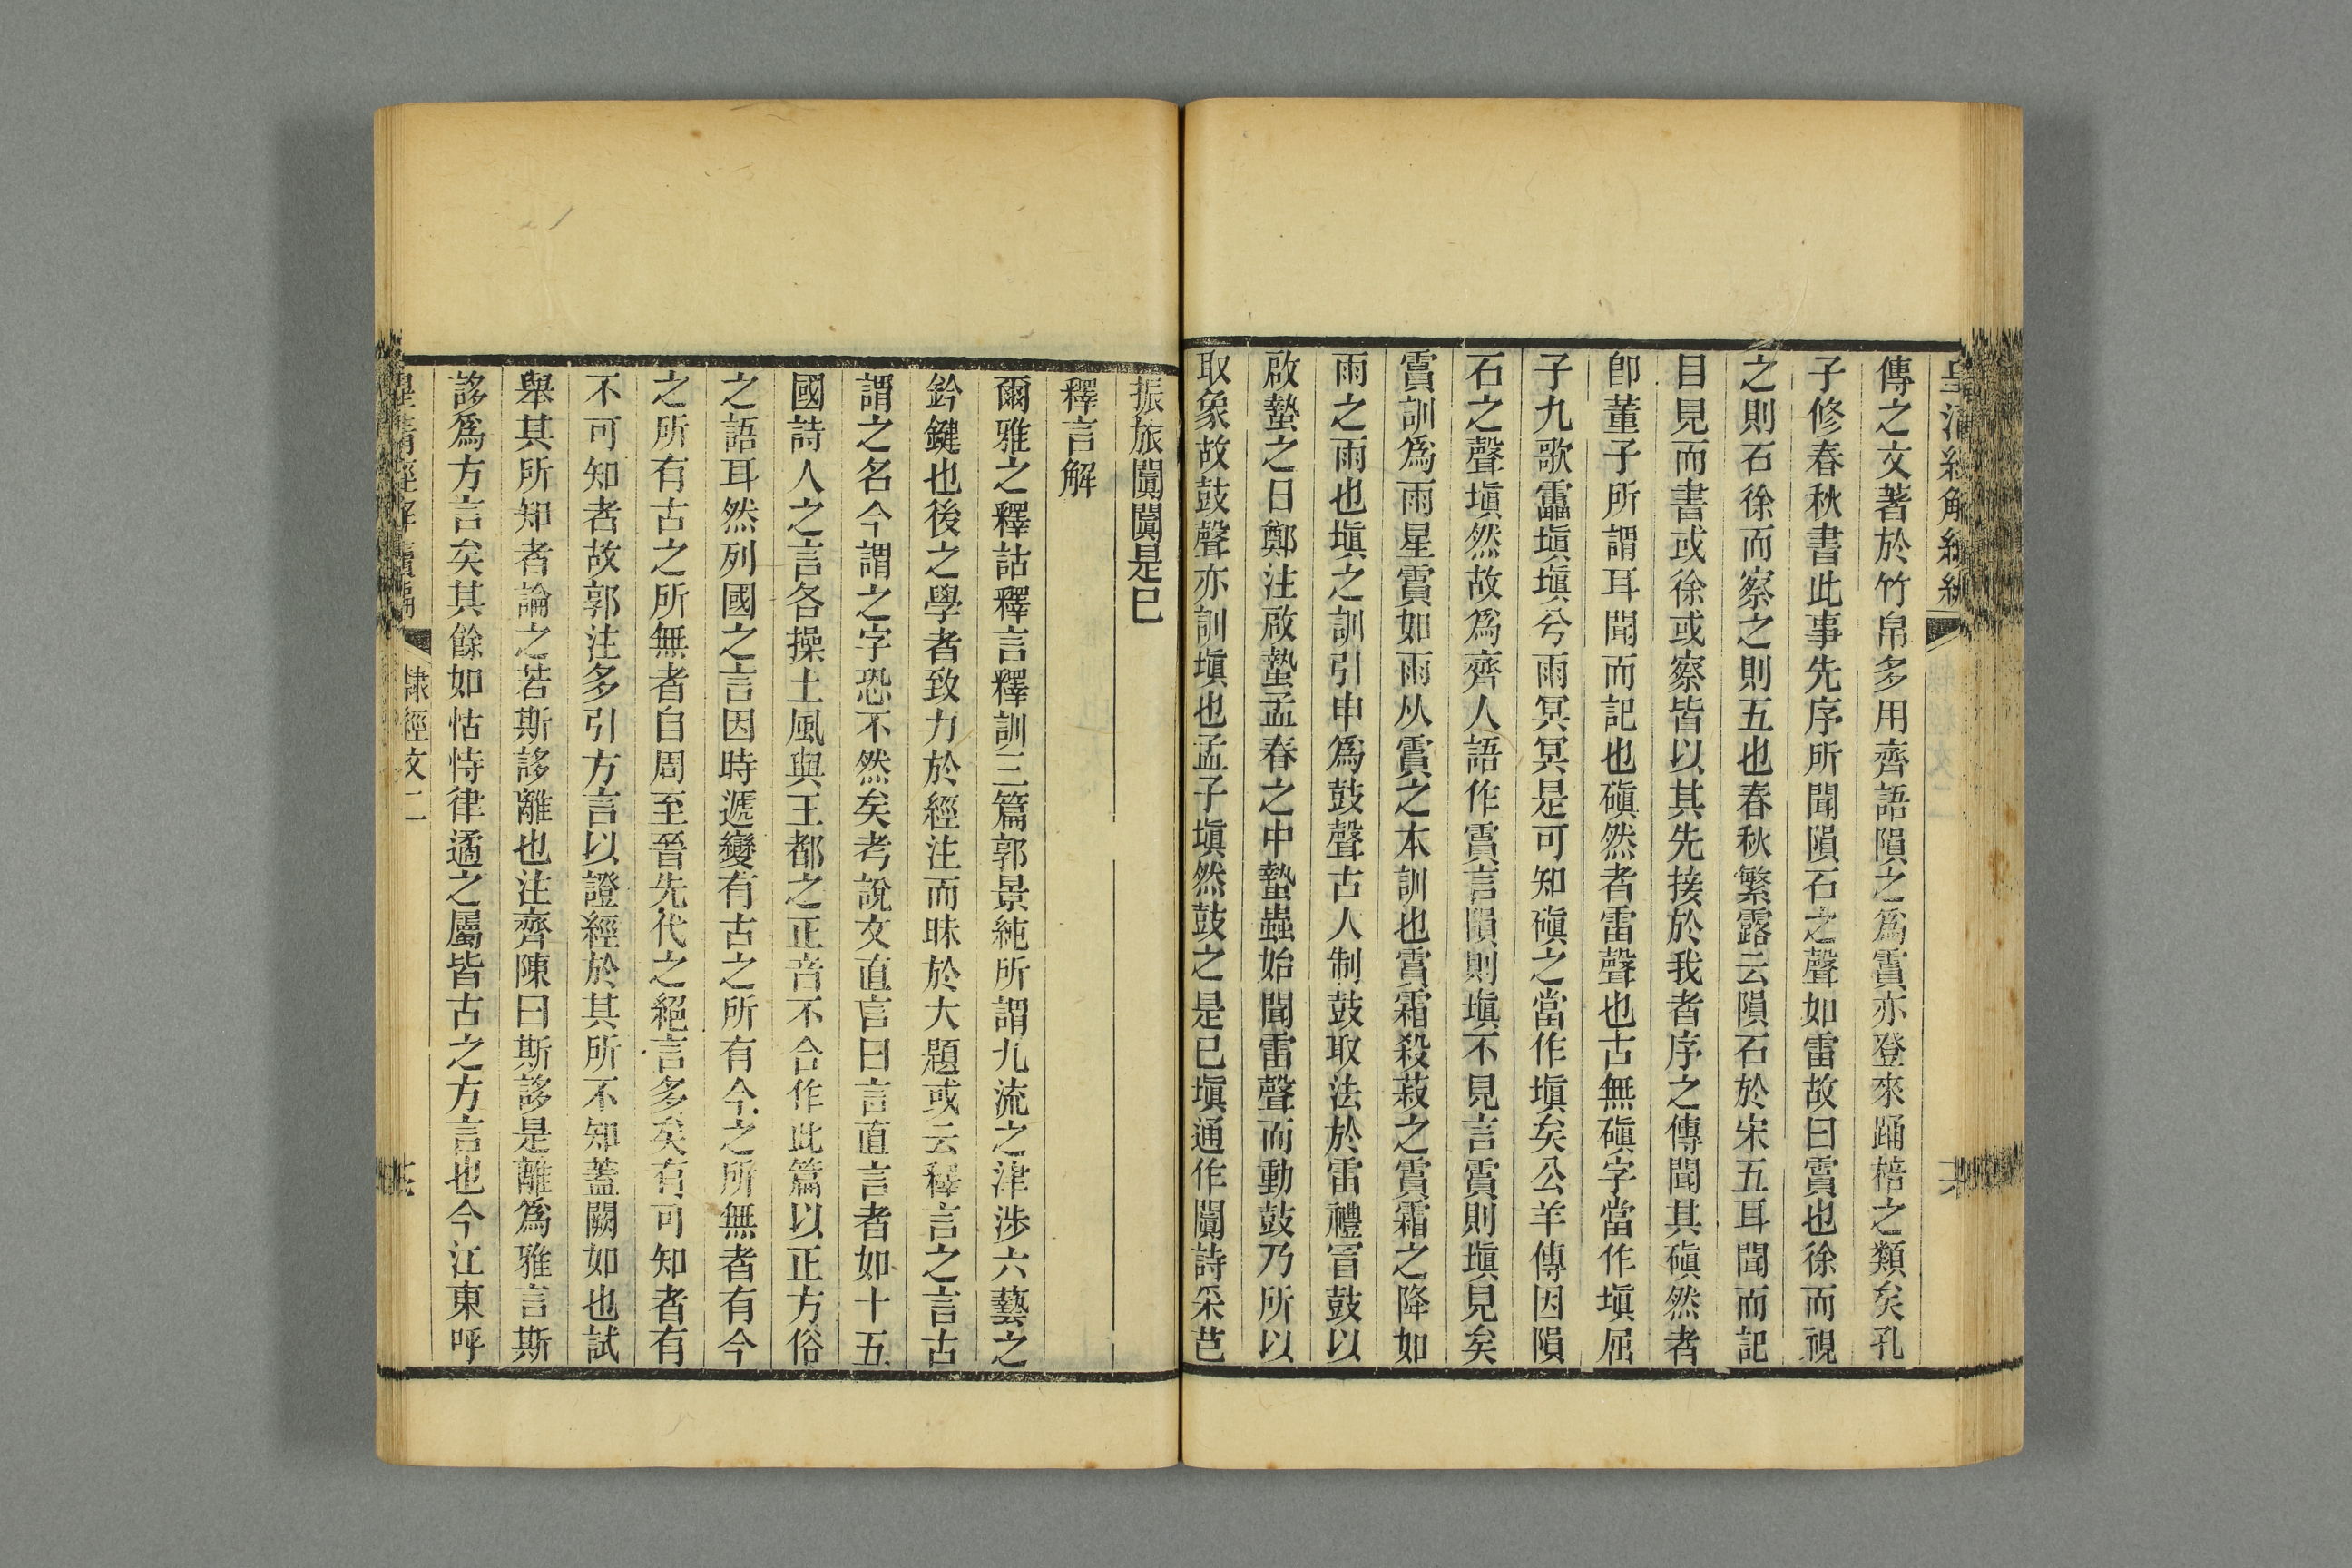 傳之文著於竹帛多用齊語隕之爲霣亦登來踊棓之類矣孔
子修春秋書此事先序所聞隕石之聲如雷故曰霣也徐而視
之則石徐而察之則五也春秋繁露云隕石於宋五耳聞而記
目見而書或徐或察皆以其先接於我者序之傳聞其磌然者
卽董子所謂耳聞而記也磌然者雷聲也古無磌字當作塡屈
子九歌靁塡塡兮雨冥冥是可知磌之當作塡矣公羊傳因隕
石之聲塡然故爲齊人語作霣言隕則塡不見言霣則塡見矣
霣訓爲雨星霣如雨从霣之本訓也霣霜殺菽之霣霜之降如
雨之雨也塡之訓引申爲鼓聲古人制鼓取法於雷禮冒鼓以
啟蟄之日鄭注啟蟄孟春之中蟄蟲始聞雷聲而動鼓乃所以
取象故鼓聲亦訓塡也孟子塡然鼓之是已塡通作闐詩采芑
振旅闐闐是已
釋言解
爾雅之釋詁釋言釋訓三篇郭景純所謂九流之津涉六藝之
鈐鍵也後之學者致力於經注而昧於大題或云釋言之言古
謂之名今謂之字恐不然矣考說文直言曰言直言者如十五
國詩人之言各操土風與王都之正音不合作此篇以正方俗
之語耳然列國之言因時遞變有古之所有今之所無者有今
之所有古之所無者自周至晉先代之絕言多矣有可知者有
不可知者故郭注多引方言以證經於其所不知蓋闕如也試
舉其所知者論之若斯誃離也注齊陳曰斯誃是離爲雅言斯
誃爲方言矣其餘如怙恃律遹之屬皆古之方言也今江東呼
皇清經解續編 隸經文二